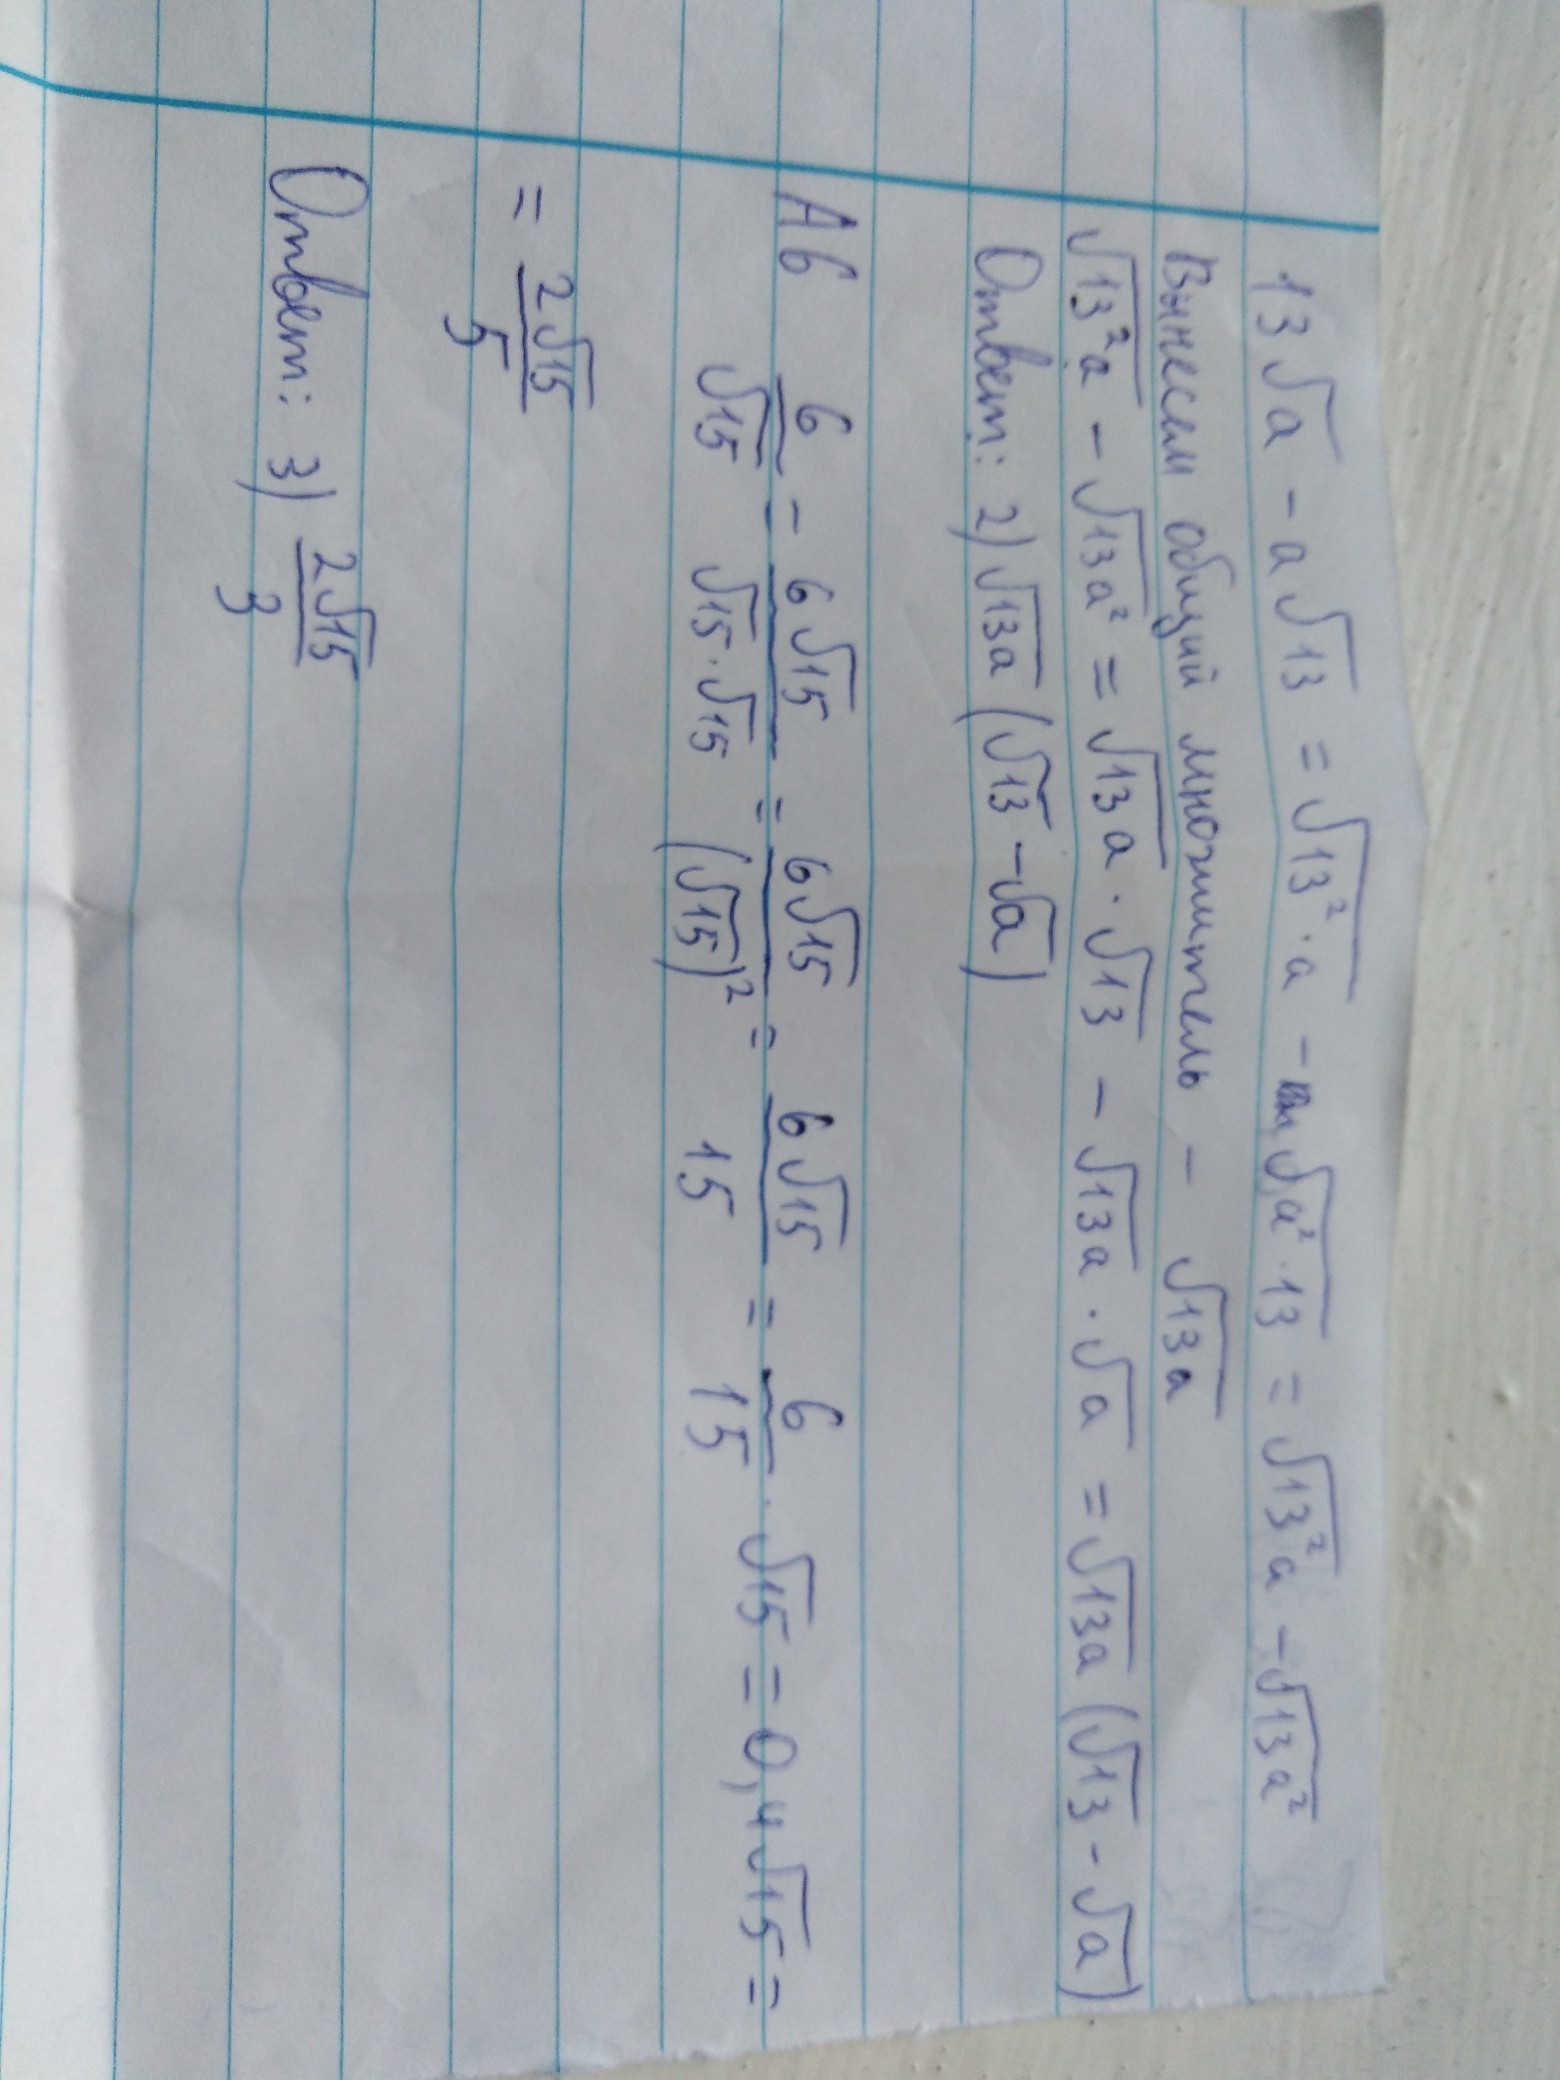 13√a - a√13 = √13²·a - √a²·13 = √13²a - √13a²
Вынесем общий множитель - √13a
√13²a - √13a² = √13a · √13 - √13a · √a = √13a (√13 - √a)
Ответ: 2) √13a (√13 - √a)
А6 6/√15 = 6√15/√15·√15 = 6√15/(√15)² = 6√15/15 = 6/15 · √15 = 0,4√15 =
= 2√15/5
Ответ: 3) 2√15/3